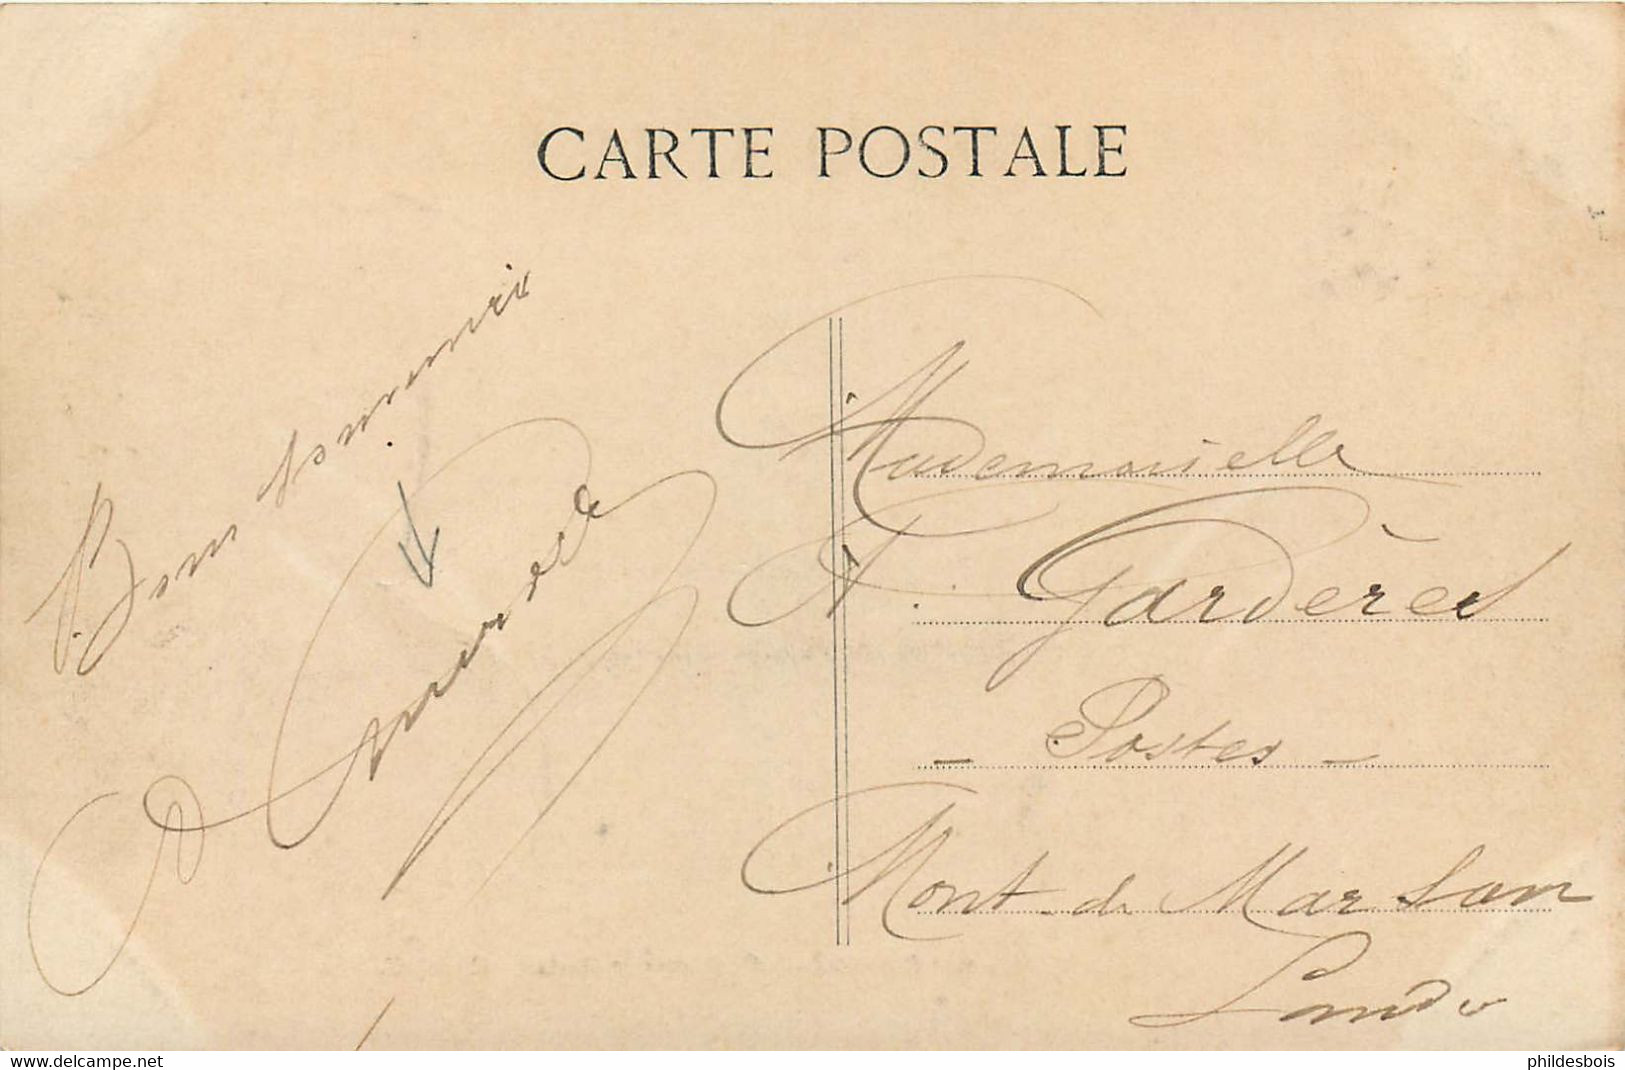 CARTE POSTALE
Bon souvenir
Mademoiselle
A. Gardères
- Postes -
Mont-de Marsan
Landes
www.delcampe.net
phildesbois